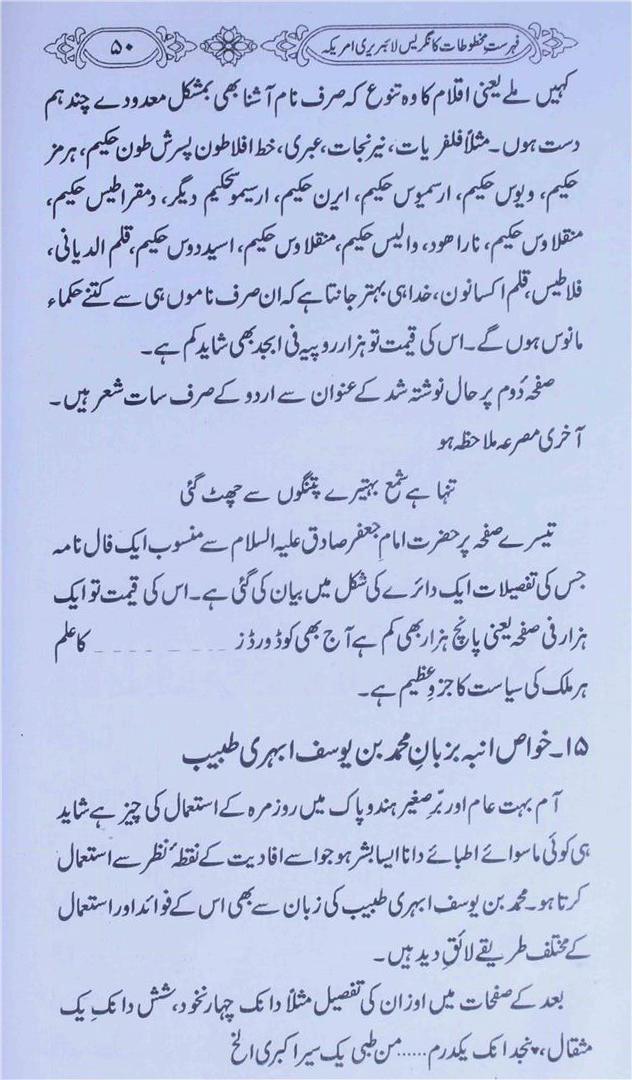 فہرست مخطوطات کانگریس لائبریری امریکہ
۵۰
کہیں ملے یعنی اقلام کا وہ تنوع کہ صرف نام آشنا بھی بمشکل معدودے چند ہم
دست ہوں۔ مثلاً فلفریات، نیرنجات، عبری، خط افلاطون پسرش طون حکیم، ہرمز
حکیم، ویوس حکیم، ارسمیوس حکیم، ایرن حکیم، ارسیمو حکیم دیگر، دمقراطیس حکیم،
منقلاوس حکیم، ناراھود، والیس حکیم، منقلاوس حکیم، اسیددوس حکیم، قلم الدیانی،
فلاطیس، قلم اکسانون، خدا ہی بہتر جانتا ہے کہ ان صرف ناموں ہی سے کتنے حکماء
مانوس ہوں گے۔ اس کی قیمت تو ہزار روپیہ فی ابجد بھی شاید کم ہے۔
صفحہ دُوم پر حال نوشتہ شد کے عنوان سے اردو کے صرف سات شعر ہیں۔
آخری مصرعہ ملاحظہ ہو
تنہا ہے شمع بہتیرے پتنگوں سے چھٹ گئی
تیسرے صفحہ پر حضرت امام جعفر صادق علیہ السلام سے منسوب ایک فال نامہ
جس کی تفصیلات ایک دائرے کی شکل میں بیان کی گئی ہے۔ اس کی قیمت تو ایک
ہزار فی صفحہ یعنی پانچ ہزار بھی کم ہے آج بھی کوڈ ورڈز _ _ _ _ _ _ _ کا علم
ہر ملک کی سیاست کا جزوِ عظیم ہے۔
۱۵۔ خواص انبہ بزبانِ محمد بن یوسف ابہری طبیب
آم بہت عام اور برّ صغیر ہند و پاک میں روزمرہ کے استعمال کی چیز ہے شاید
ہی کوئی ماسوائے اطبائے دانا ایسا بشر ہو جو اسے افادیت کے نقطۂ نظر سے استعمال
کرتا ہو۔ محمد بن یوسف ابہری طبیب کی زبان سے بھی اس کے فوائد اور استعمال
کے مختلف طریقے لائقِ دید ہیں۔
بعد کے صفحات میں اوزان کی تفصیل مثلاً دانک چہار نخود، شش دانک یک
مثقال، پنجدانک یکدرم......من طبی یک سیر اکبری الخ